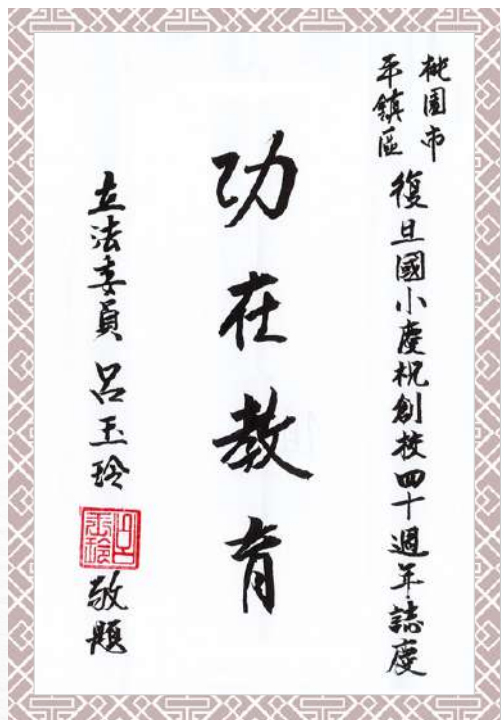 桃園市
平鎮區
復旦國小慶祝創校四十週年誌慶
功在教育
立法委員 呂玉玲 敬題
呂玉玲